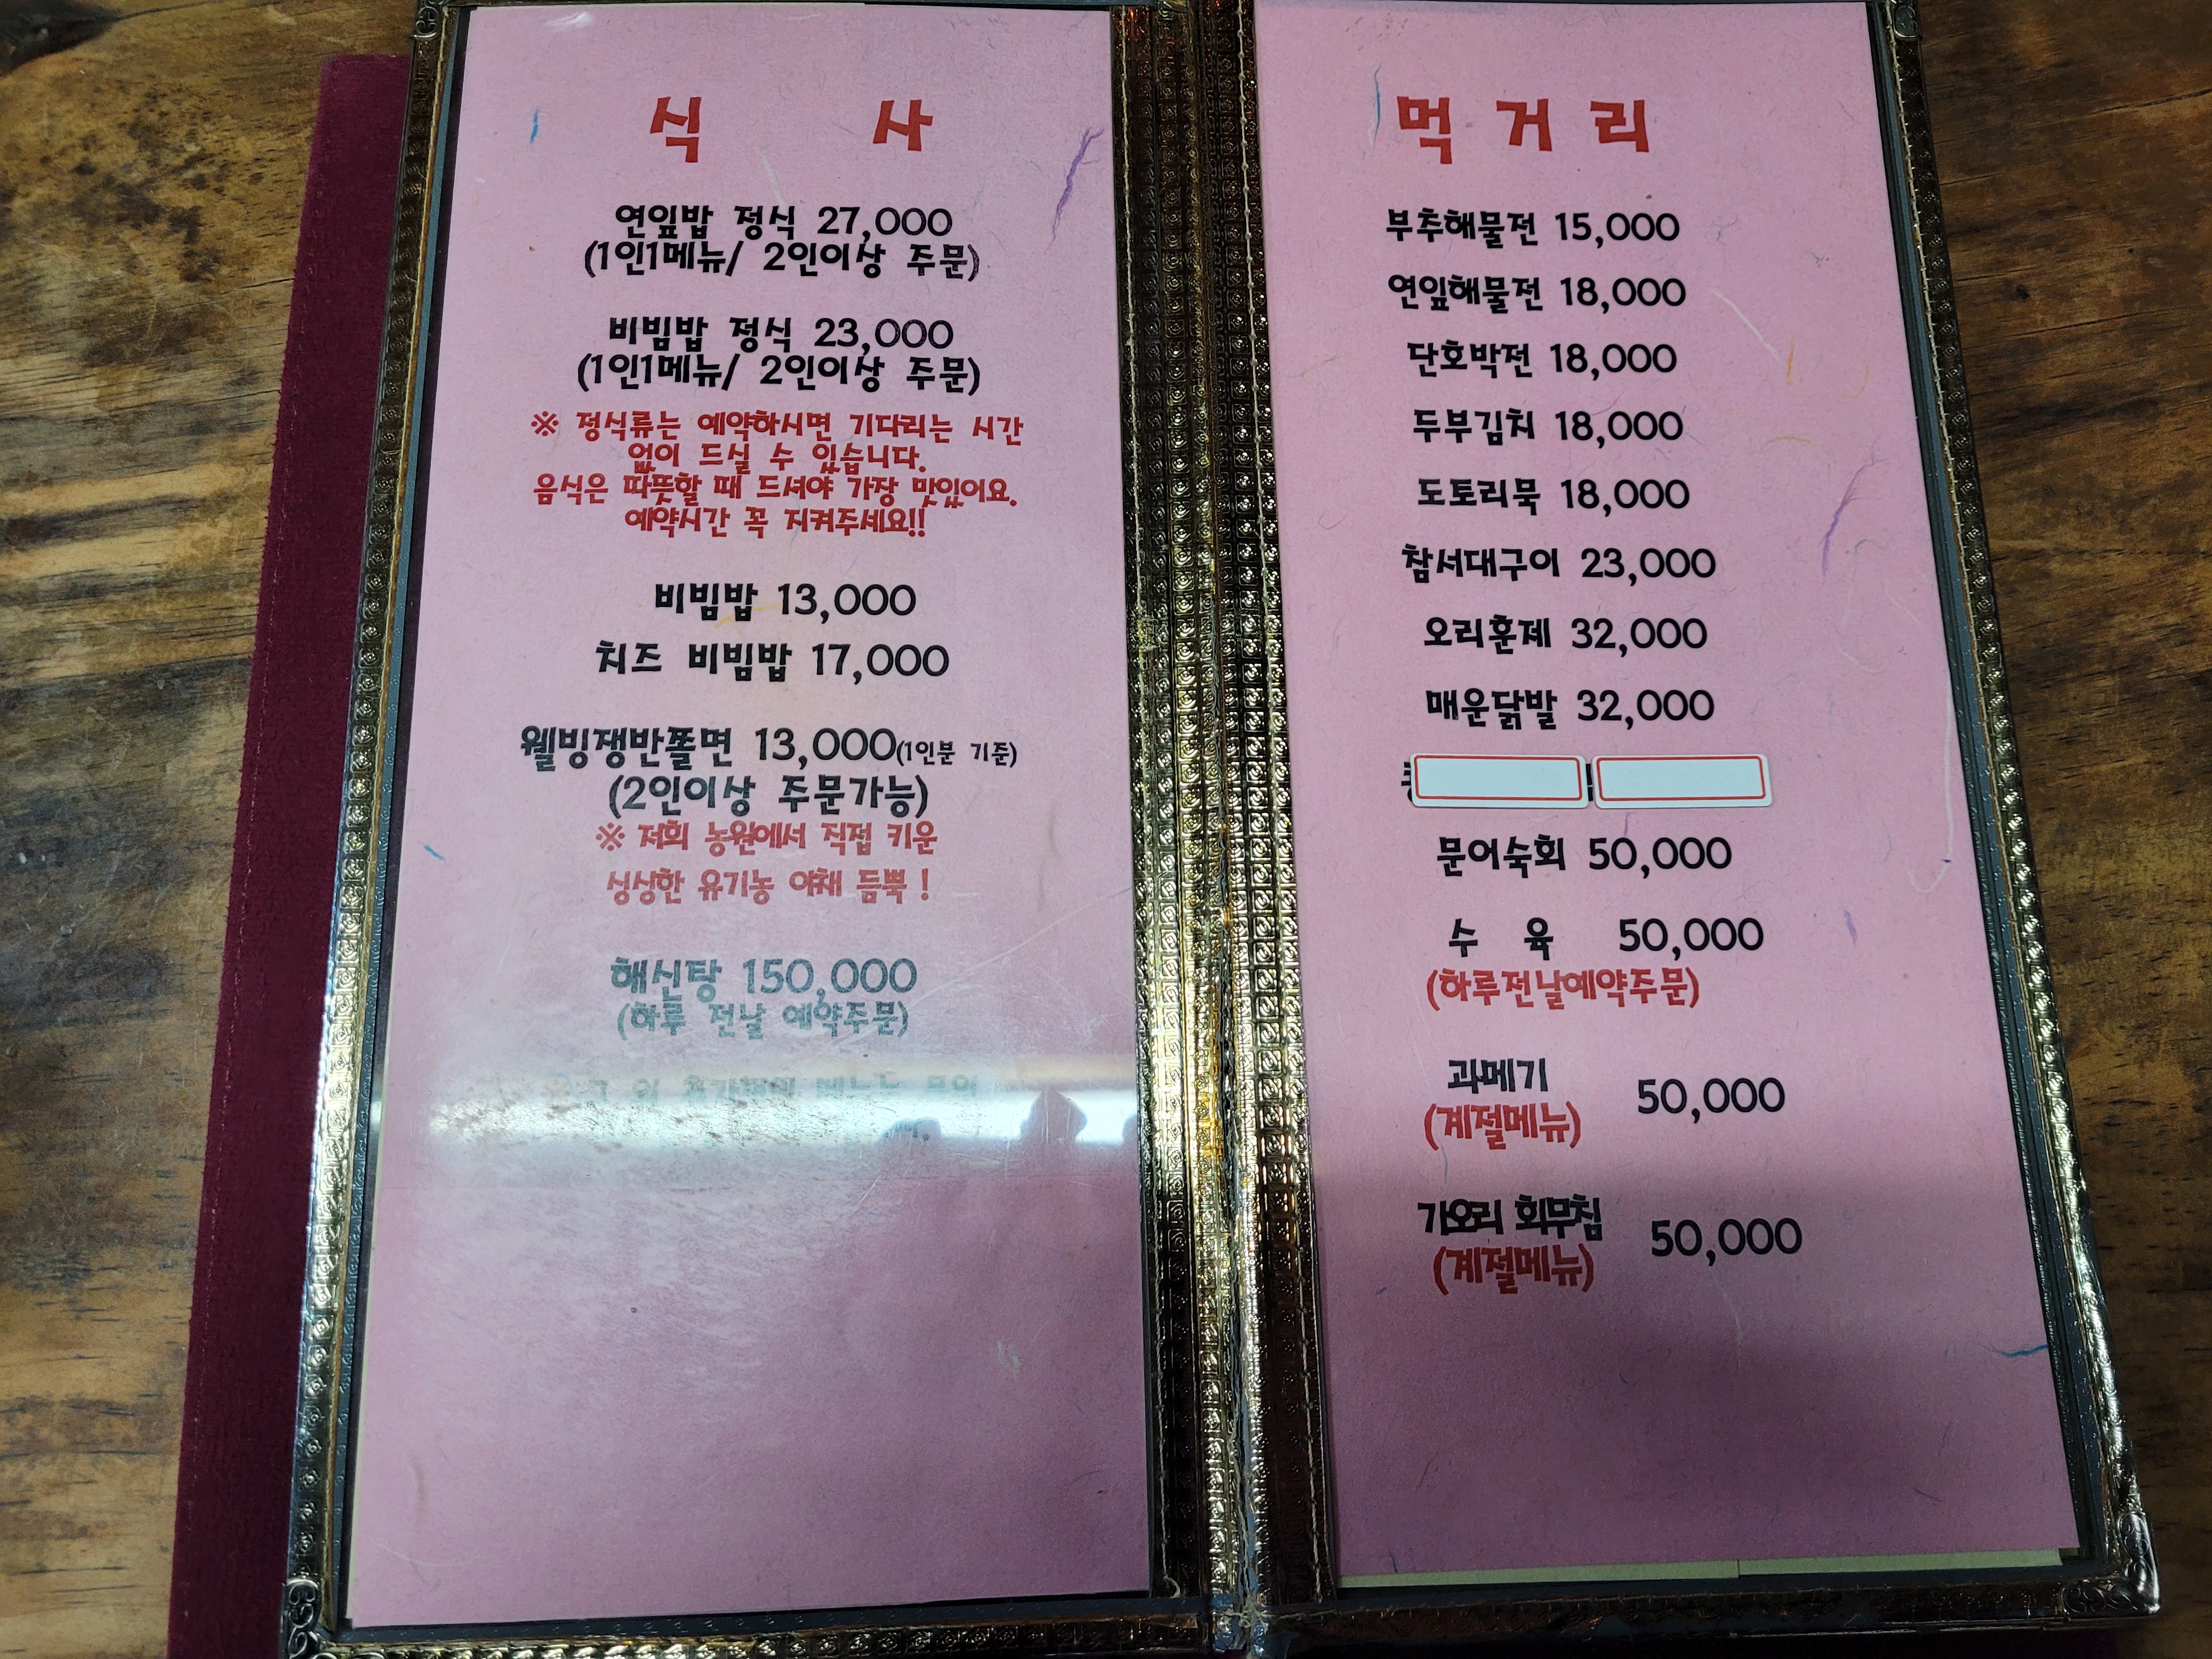 식 사
연잎밥 정식 27,000
(1인1메뉴/ 2인이상 주문)
비빔밥 정식 23,000
(1인1메뉴/ 2인이상 주문)
※ 정식류는 예약하시면 기다리는 시간
없이 드실 수 있습니다.
음식은 따뜻할 때 드셔야 가장 맛있어요.
예약시간 꼭 지켜주세요!!
비빔밥 13,000
치즈 비빔밥 17,000
웰빙쟁반쫄면 13,000(1인분 기준)
(2인이상 주문가능)
※ 저희 농원에서 직접 키운
싱싱한 유기농 야채 듬뿍 !
해신탕 150,000
(하루 전날 예약주문)
메뉴는
먹거리
부추해물전 15,000
연잎해물전 18,000
단호박전 18,000
두부김치 18,000
도토리묵 18,000
참서대구이 23,000
오리훈제 32,000
매운닭발 32,000
문어숙회 50,000
수 육 50,000
(하루전날예약주문)
과메기 50,000
(계절메뉴)
가오리 회무침 50,000
(계절메뉴)